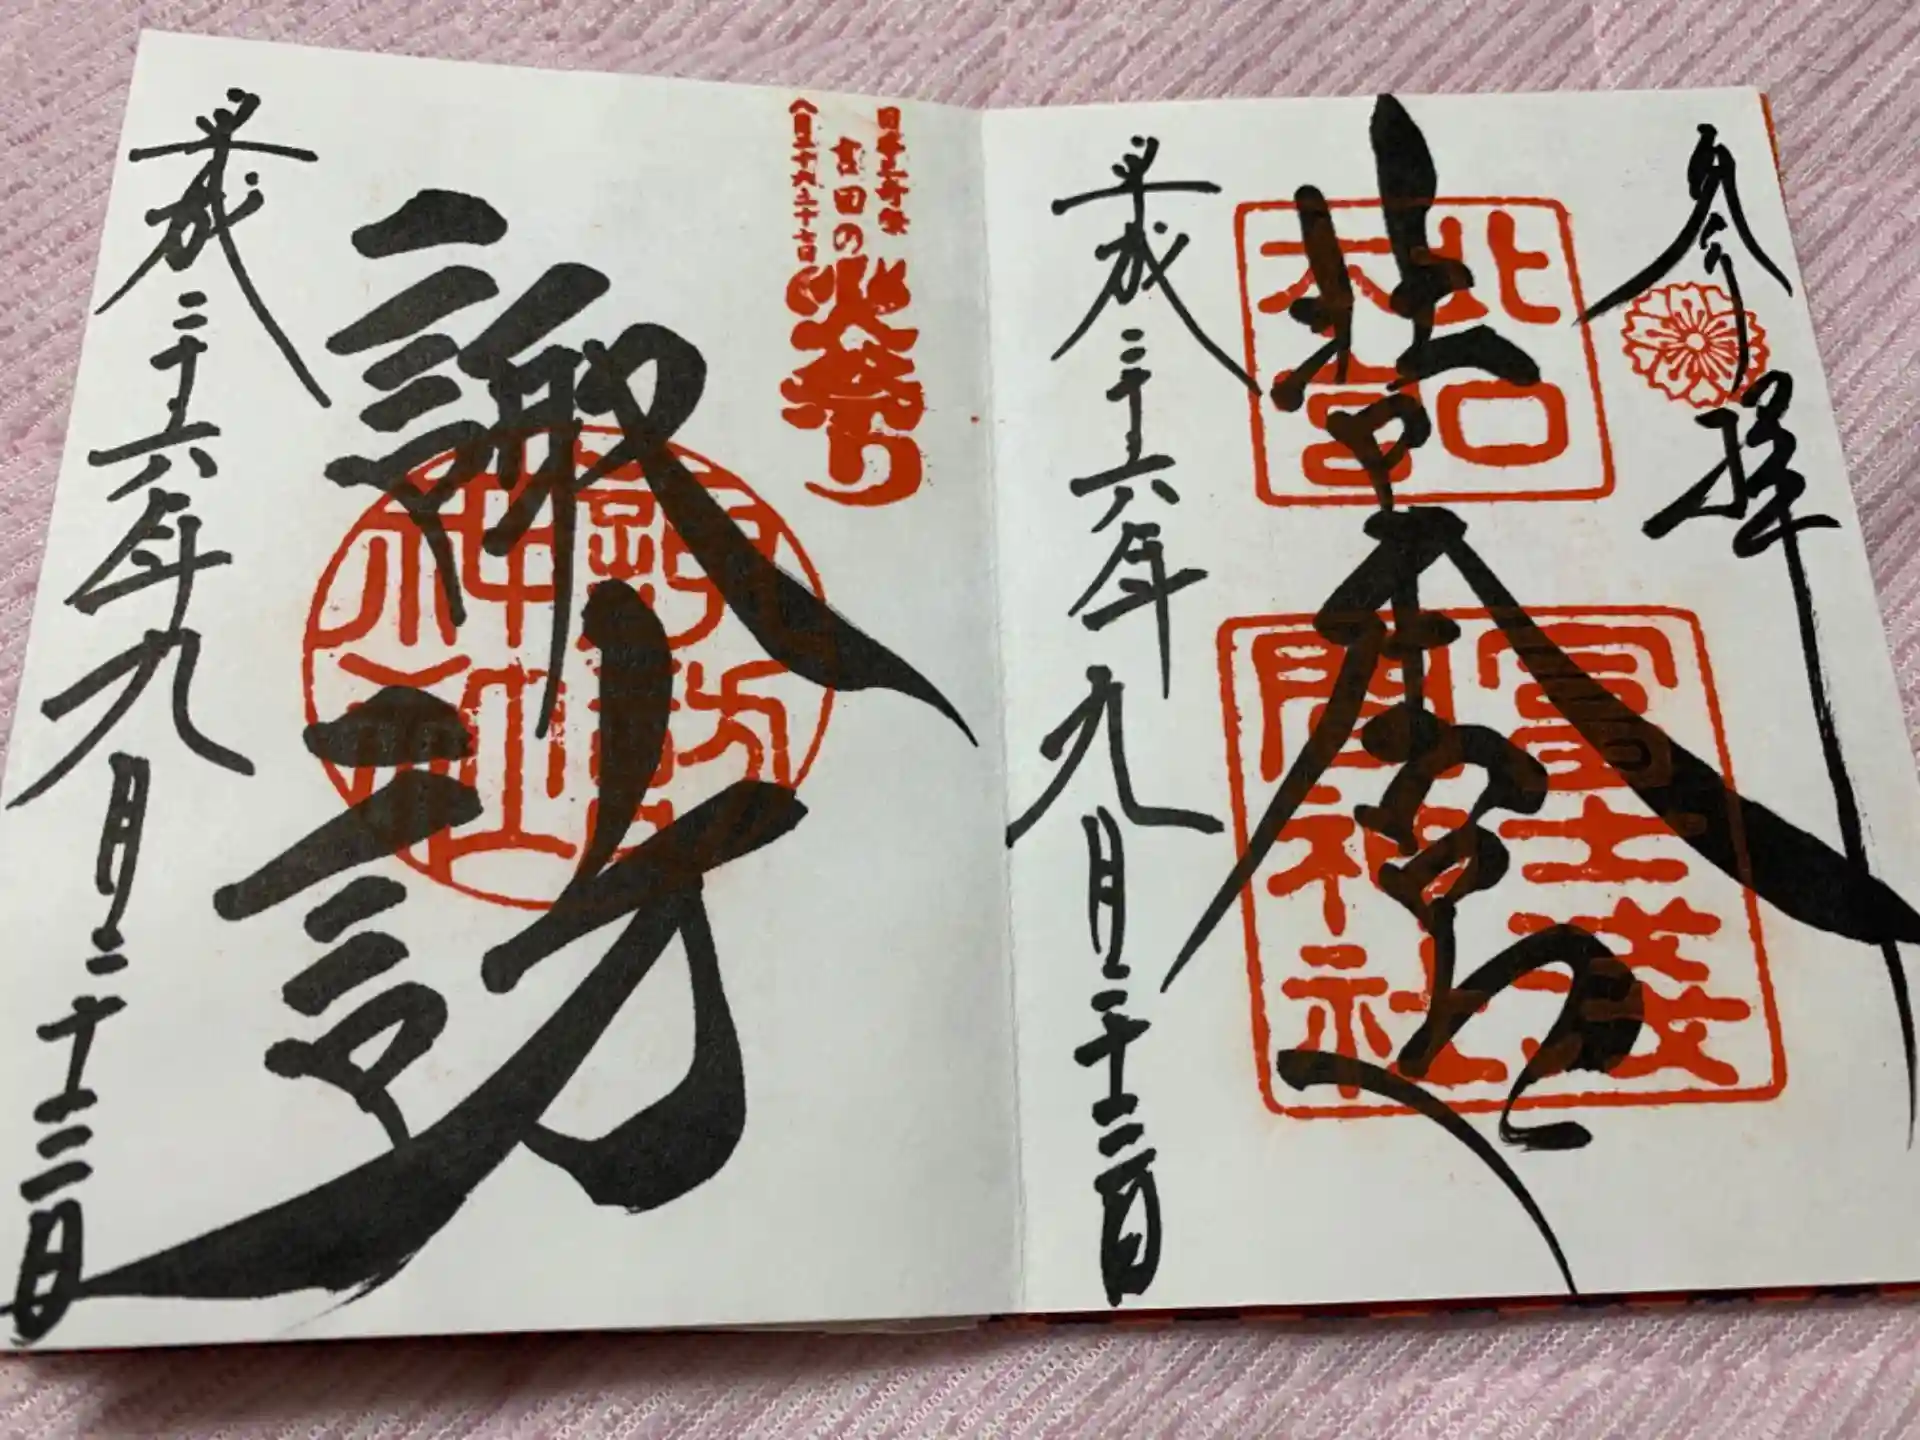 参拝
北口
本宮
北口本宮
冨士浅
間神社
平成二十六年九月二十二日
日本三奇祭
吉田の火祭り
八月二十六二十七日
諏訪
諏訪
神社
平成二十六年九月二十二日